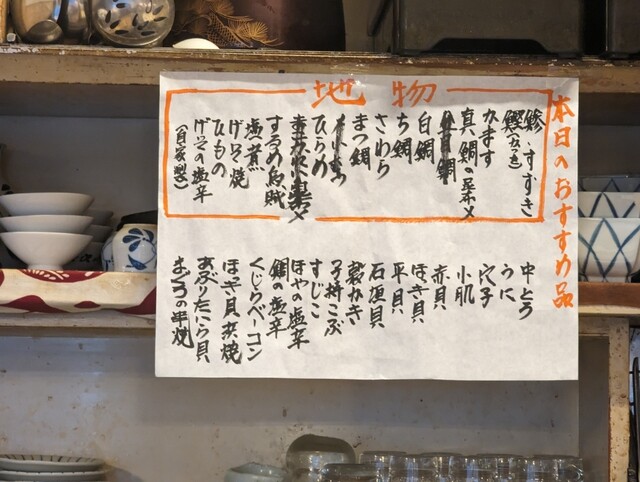 本日のおすすめ品
地物
鯵、すずき
鰹(たたき)
かます
真鯛の昆布〆
白鯛
ち鯛
さわら
まつ鯛
ひらめ
するめ烏賊
塩煮
げそ焼
ひもの
げその塩辛
(自家製)
中とろ
うに
穴子
小肌
赤貝
ほき貝
平貝
石垣貝
岩かき
子持こぶ
すじこ
ほやの塩辛
鯛の塩辛
くじらベーコン
ほっき貝炙焼
あぶりたいら貝
まぐろの串焼